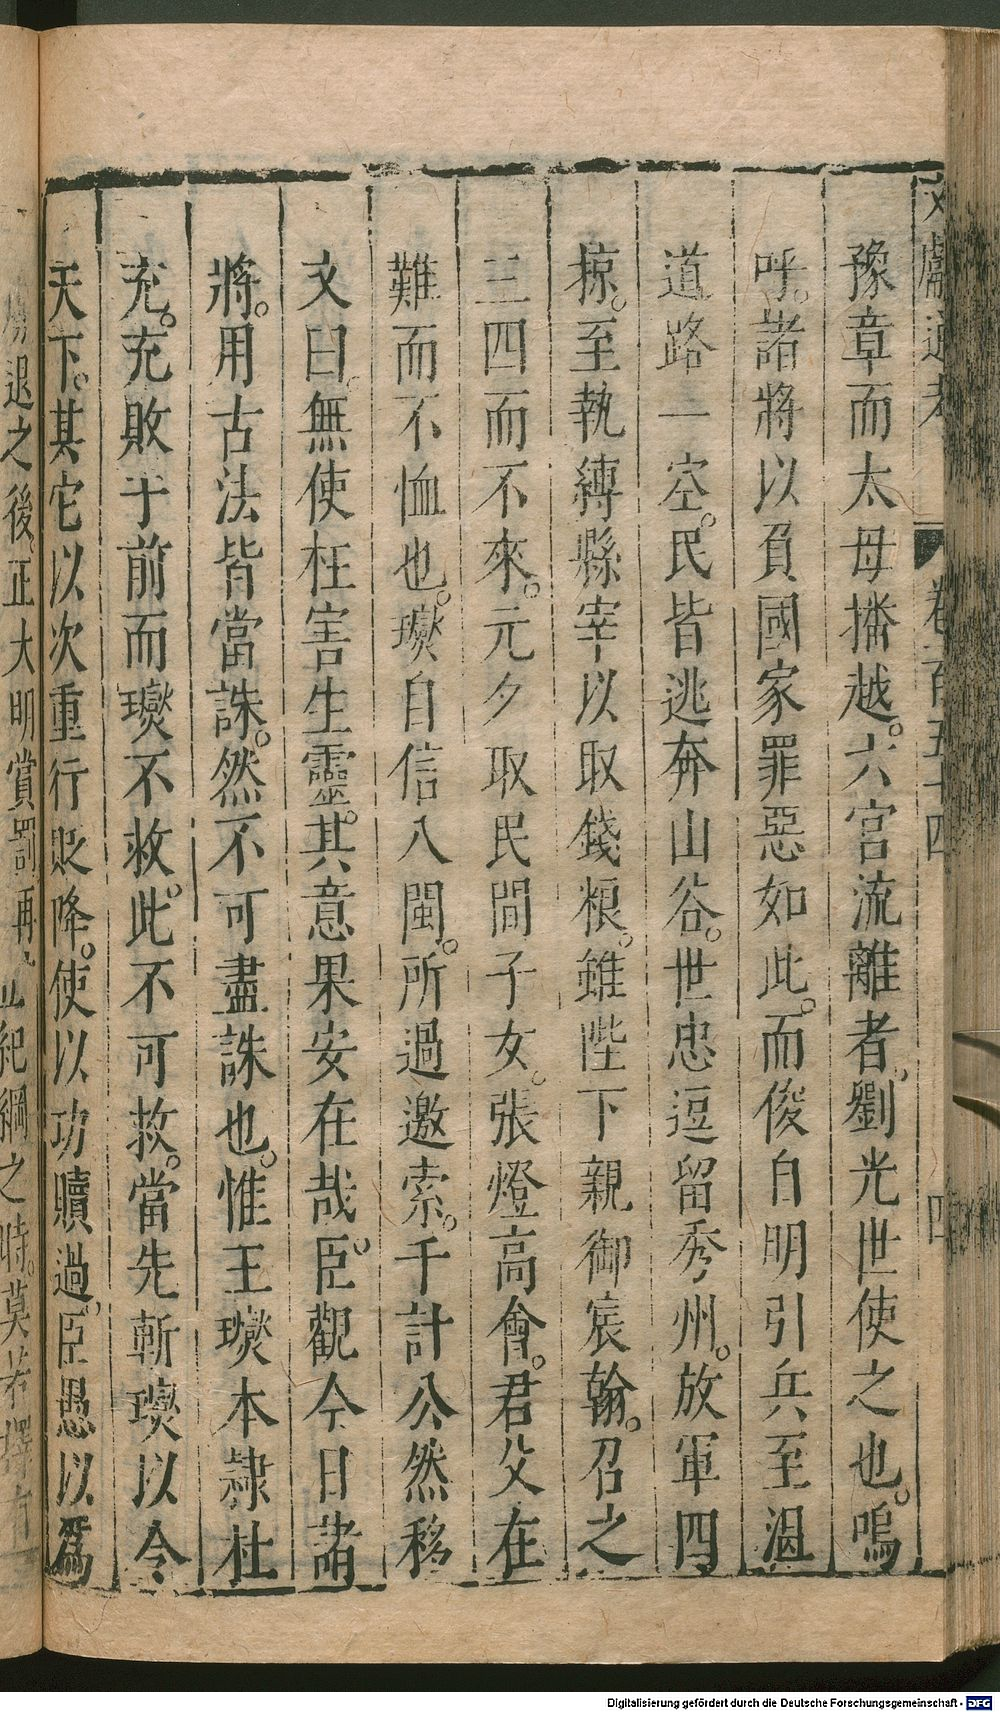 文獻通考 卷一百五十四 四
豫章而太母播越。六宮流離者。劉光世使之也。嗚
呼。諸將以負國家罪惡如此。而俊自明引兵至溫
道路一空。民皆逃奔山谷。世忠逗留秀州。放軍四
掠。至執縛縣宰以取錢粮。雖陛下親御宸翰。召之
三四而不來。元夕取民間子女。張燈高會。君父在
難而不恤也。𤫉自信入閩。所過邀索。千計公然移
文曰。無使枉害生靈。其意果安在哉。臣觀今日諸
將。用古法皆當誅。然不可盡誅也。惟王𤫉本隷杜
充。充敗于前而𤫉不救。此不可救。當先斬𤫉以令
天下。其它以次重行貶降。使以功贖過。臣愚以爲
退之後。正大明賞罰再 紀綱之時。莫若擇有
Digitalisierung gefördert durch die Deutsche Forschungsgemeinschaft - DFG